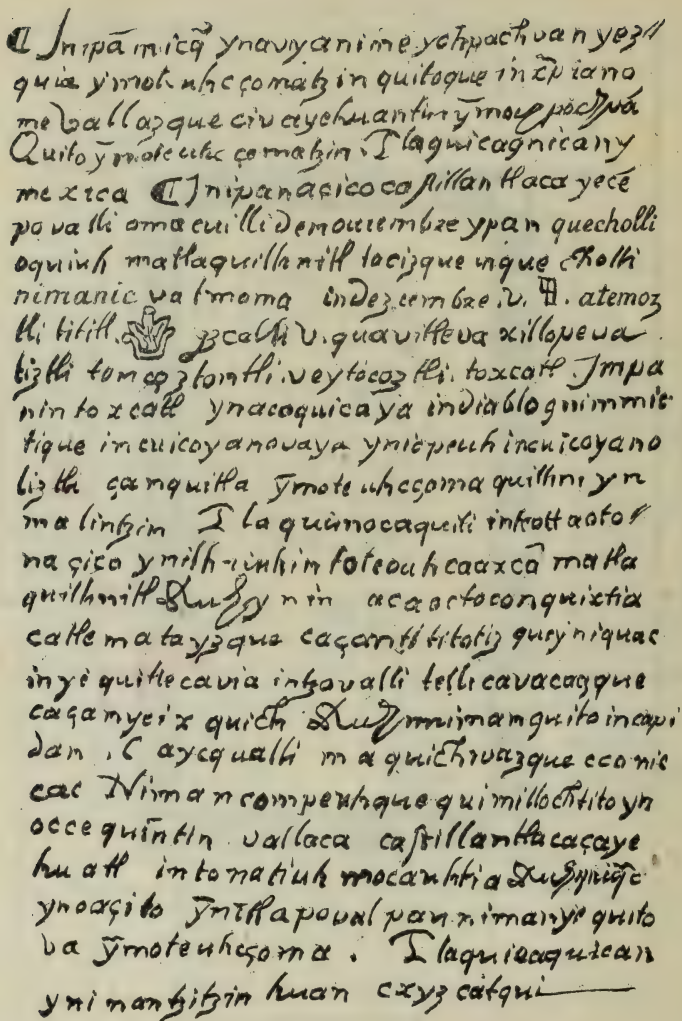 ¶ Jnipā micq̄ ynavyanime ychpachvan yez
quia ymoteuhcçomatzin quitoque in xp̄iano
me vallazque civa yehuantin ȳmochpochvā
Quito ȳmoteuhcçomatzin. Tlaquicaqnicany
mexica ¶ Jnipanacico castillantlaca yece
povalli omacuilli demouiembre ypan quecholli
oquiuh matlaquilhuitl tocizque inquecholli
nimanic valmoma indeziembre .v. atemoz
tli tititl. yzcalli v. quavitleva xillopeva
liztli tomçoztontli. veytoçoztli. toxcatl. Jmpa
nin toxcatl ynacoquicaya indiablo quimmic
tique incuicoyanovaya ynicpeuh incuicoyano
liztli çanquitta ȳmoteuhcçoma quilhui yn
malintzin Tlaquimocaquiti intottaoto
naçico ynilhuiuhtzin toteouhcaaxcā matla
quilhuitl ynin acaoctoconquixtia
catlematayzque caçantititotiz queyniquac
inyequitlecavia intzovalli tellicavacazque
caçanyeixquich nimanquito incapi
dan .C aycqualli maquichivazque ceonic
cac Niman compeuhque quimillochtito yn
occequintin vallaca castillantlaca çaye
huatl intonatiuh mocauhtia
ynoaçito ȳntlapoval pannimanye quito
va ȳmoteuhcçoma. Tlaquicaquican
ynimantzitzin huan cxyzcatqui